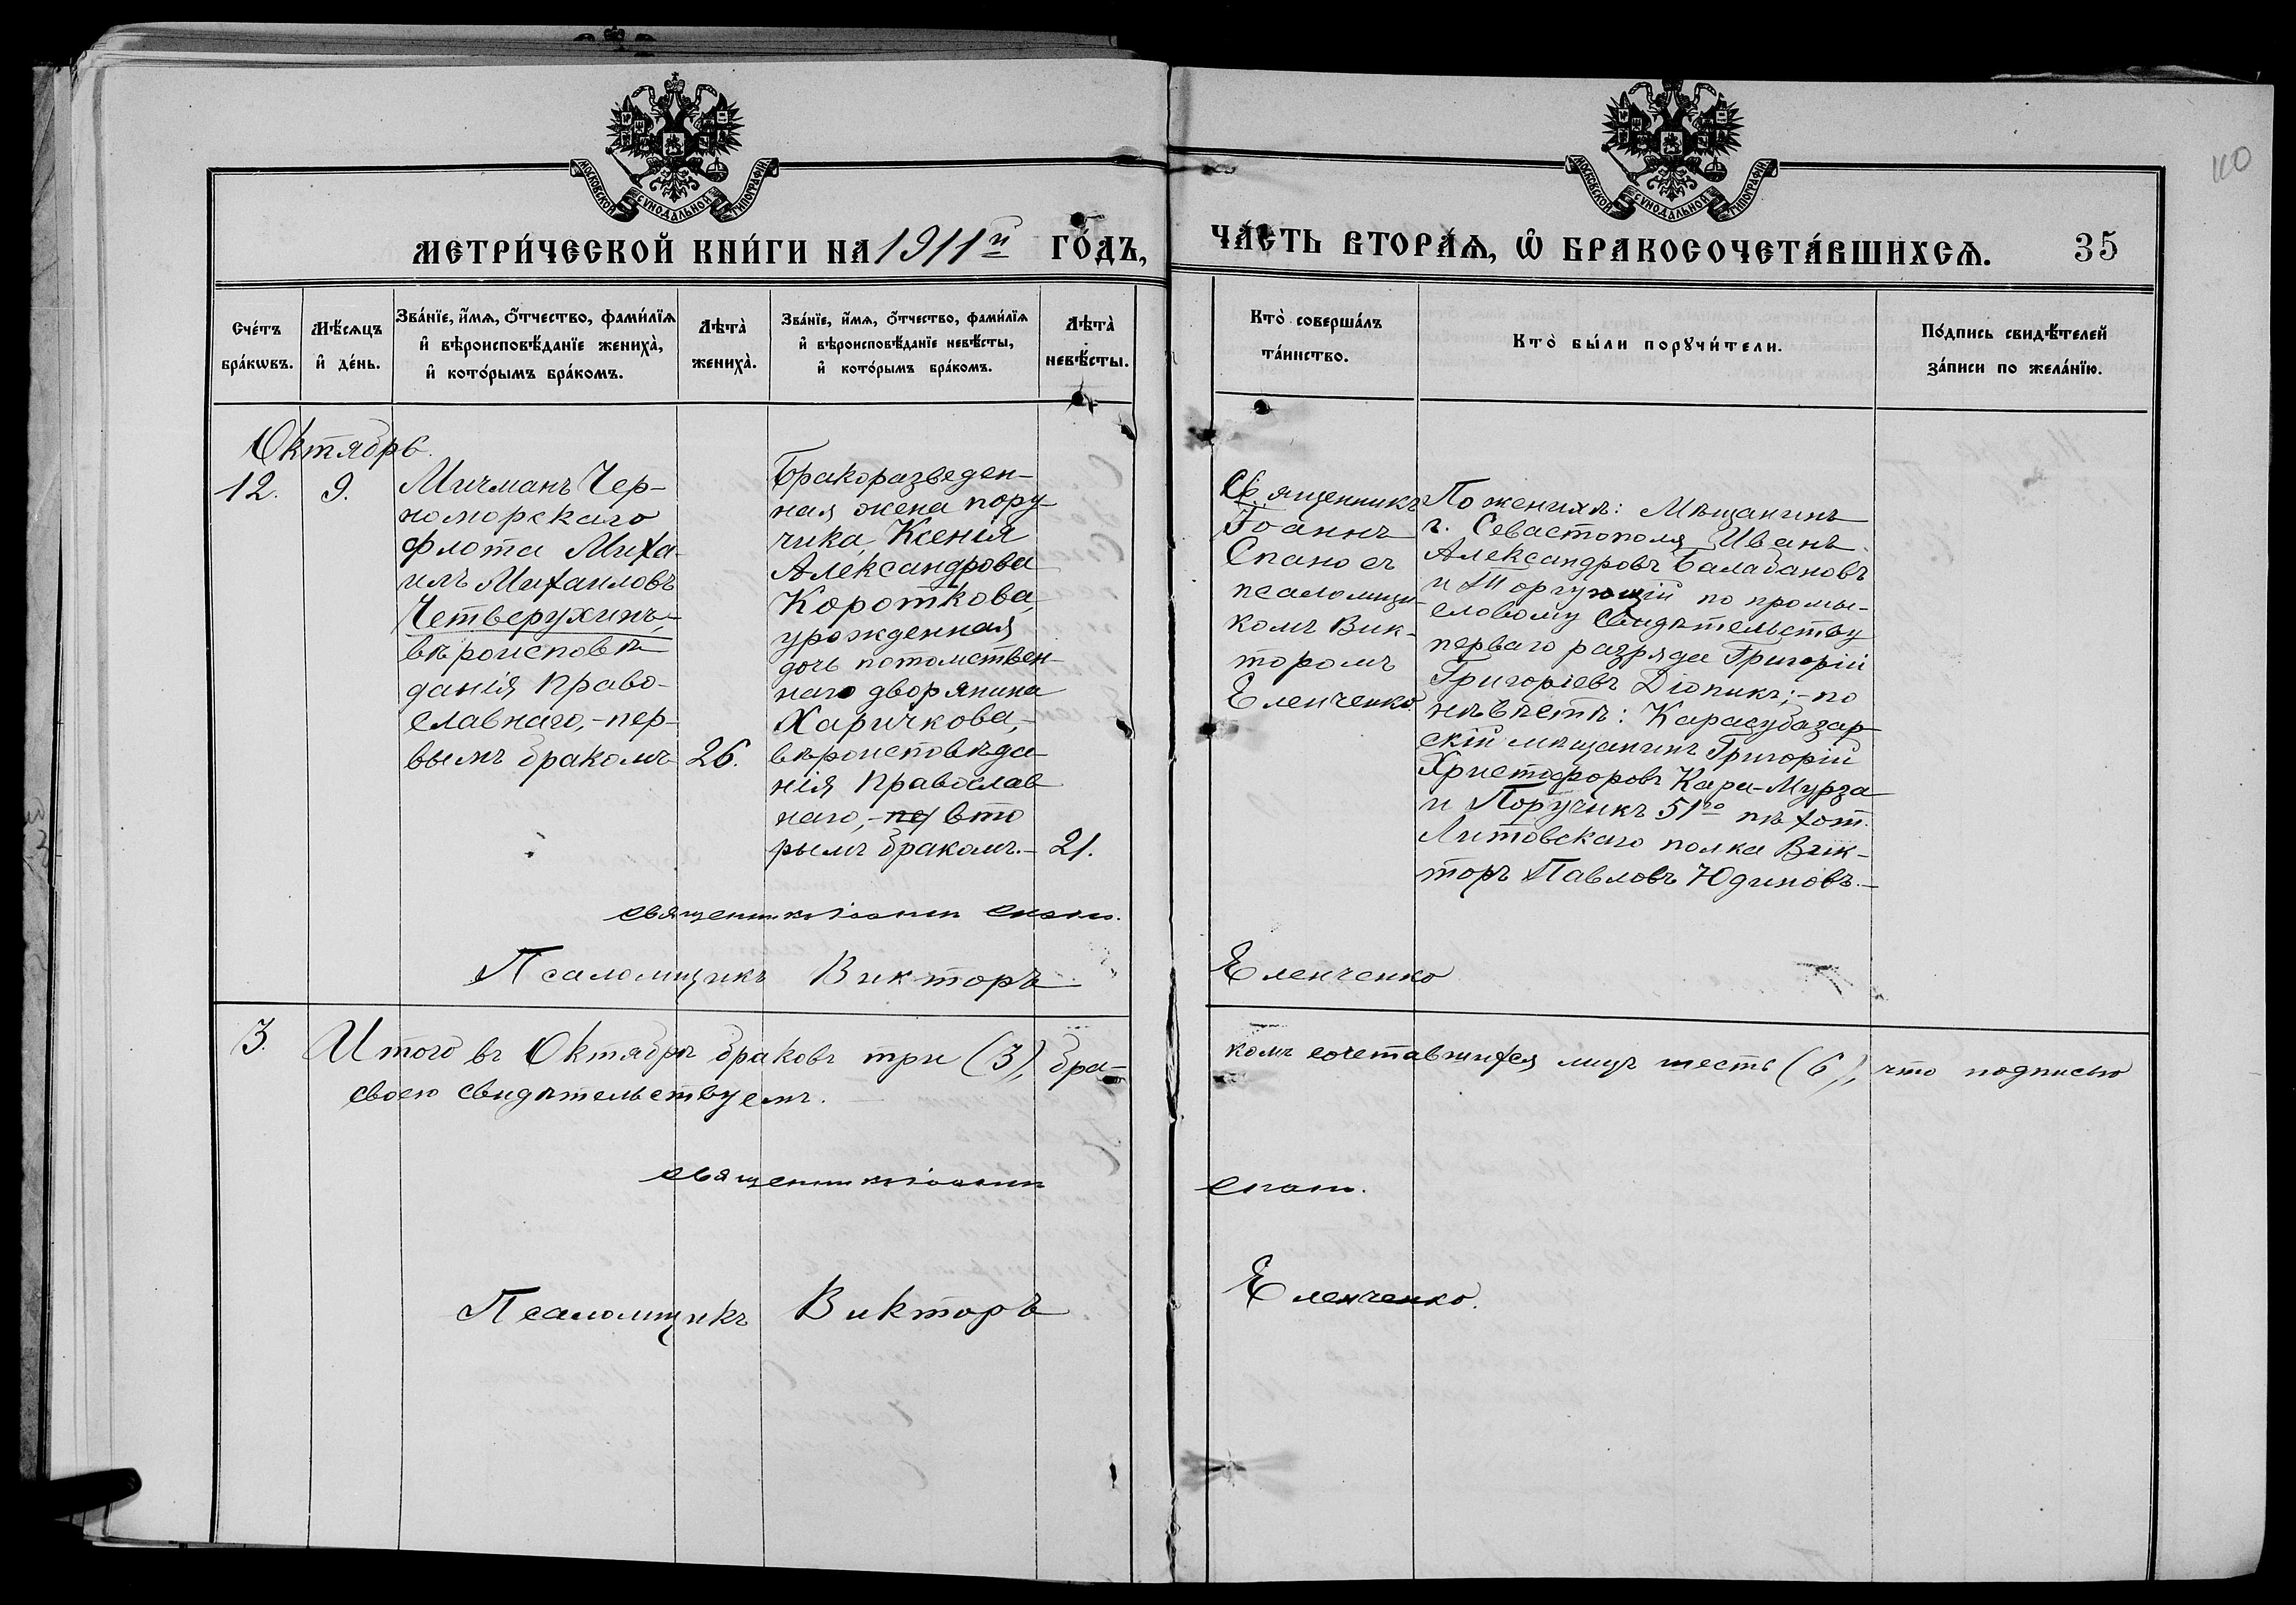 МОСКОВСКОЙ СѴНОДАЛЬНОЙ ТИПОГРАФІИ
МОСКОВСКОЙ СѴНОДАЛЬНОЙ ТИПОГРАФІИ
110
МЕТРИ́ЧЕСКОЙ КНИ́ГИ НА 1911й ГО́ДЪ,
ЧА́СТЬ ВТОРА́Ѧ, Ѿ БРАКОСОЧЕТА́ВШИХСѦ.
35
Сче́тъ
бра́кѡвъ.
Мѣ́сѧцъ
и҆ де́нь.
Зва́нїе, и҆́мѧ, ѻ҆́тчество, фами́лїѧ
и҆ вѣроисповѣ́данїе жениха̀,
и҆ кото́рымъ бра́комъ.
Лѣта̀
жениха̀.
Зва́нїе, и҆́мѧ, ѻ҆́тчество, фами́лїѧ
и҆ вѣроисповѣ́данїе невѣ́сты,
и҆ кото́рымъ бра́комъ.
Лѣта̀
невѣ́сты.
Кто̀ соверша́лъ
та́инство.
Кто̀ бы́ли порꙋчи́тели.
По́дпись свидѣ́телей
за́писи по жела́нїю.
Октябрь.
12.
9.
Мичманъ Чер-
номорскаго
флота Миха-
илъ Михаиловъ
Четверухинъ,-
вѣроисповѣ
данія право-
славнаго,-пер-
вымъ бракомъ
26.
Бракоразведен-
ная жена пору-
чика, Ксенія
Александрова
Короткова,
урожденная
дочь потомствен-
наго дворянина
Харичкова,-
вѣроисповѣда
нія православ
наго,- пер вто
рымъ бракомъ.-
21.
Священникъ
Іоаннъ
Спано съ
псаломщи-
комъ Вик-
торомъ
Еленченко.
По женихѣ: Мѣщанинъ
г. Севастополя Иванъ
Александровъ Балабановъ
и Торгующій по промы-
словому свидѣтельству
перваго разряда Григорій
Григоріевъ Діопикъ;-по
невѣстѣ: Карасубазар-
скій мѣщанинъ Григорій
Христофоровъ Кара-Мурза
и Поручикъ 51го пѣхот.
Литовскаго полка Вик-
торъ Павловъ Юдиновъ.-
священникъ Іоаннъ Спано.
Псаломщикъ Викторъ Еленченко
3.
Итого въ Октябрѣ браковъ три (3), бра- комъ сочетавшихся лицъ шесть (6), что подписью
своею свидѣтельствуемъ.
священникъ Іоаннъ Спано.
Псаломщикъ Викторъ Еленченко.